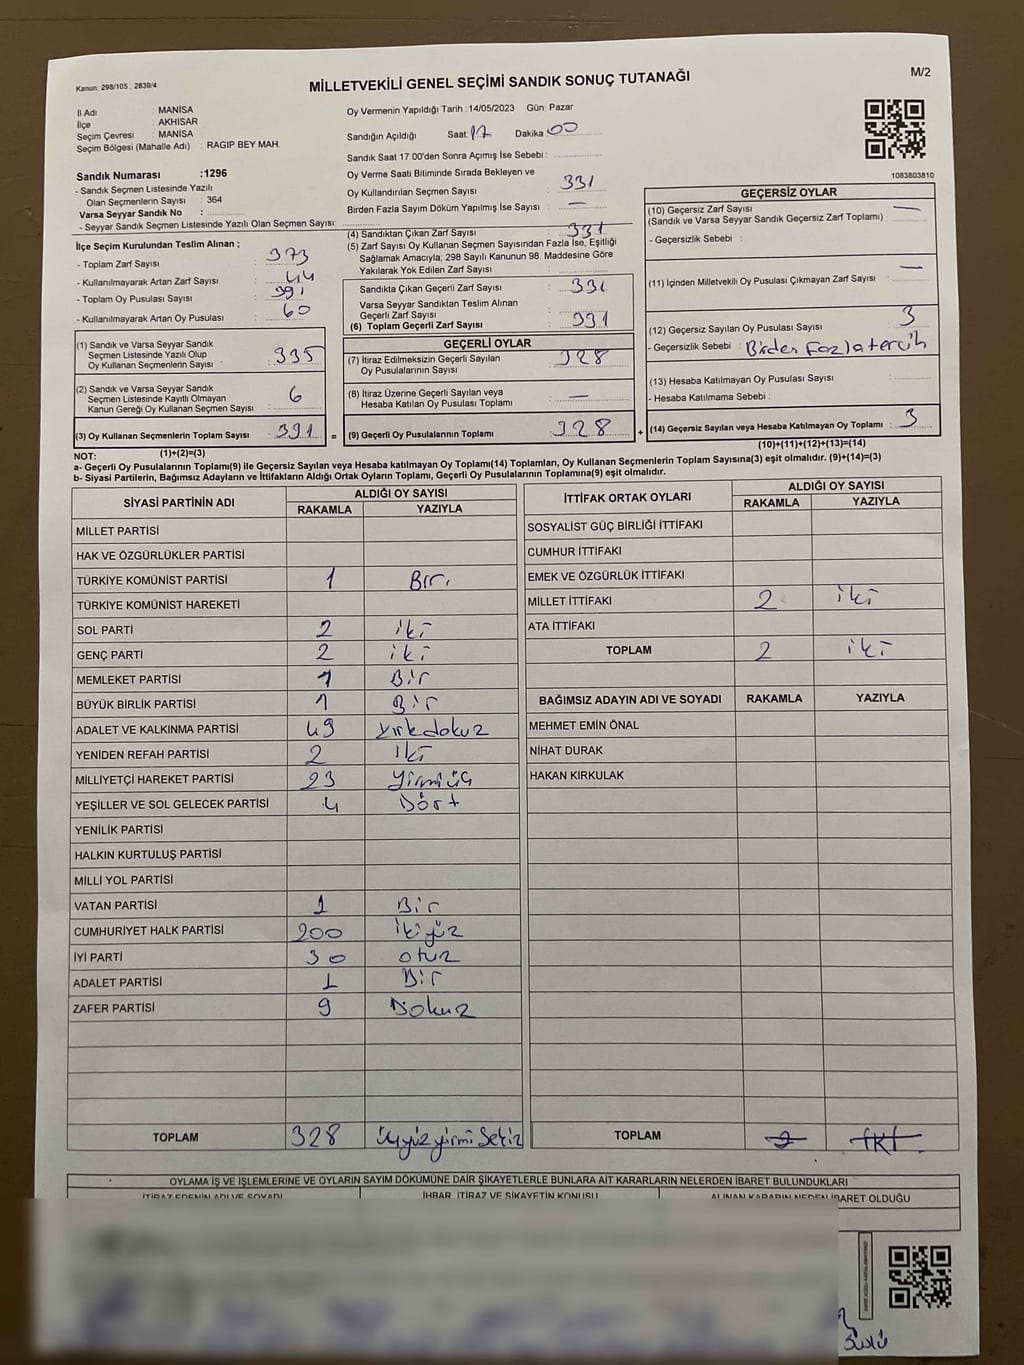 Kanun: 298/105 , 2839/4
MİLLETVEKİLİ GENEL SEÇİMİ SANDIK SONUÇ TUTANAĞI
M/2
İl Adı : MANİSA
İlçe : AKHİSAR
Seçim Çevresi : MANİSA
Seçim Bölgesi (Mahalle Adı) : RAGIP BEY MAH.
Sandık Numarası : 1296
- Sandık Seçmen Listesinde Yazılı
Olan Seçmenlerin Sayısı : 364
Varsa Seyyar Sandık No :
- Seyyar Sandık Seçmen Listesinde Yazılı Olan Seçmen Sayısı:
Oy Vermenin Yapıldığı Tarih : 14/05/2023 Gün: Pazar
Sandığın Açıldığı Saat: 17 Dakika 00
Sandık Saat 17.00'den Sonra Açımış İse Sebebi :
Oy Verme Saati Bitiminde Sırada Bekleyen ve
Oy Kullandırılan Seçmen Sayısı : 331
Birden Fazla Sayım Döküm Yapılmış İse Sayısı : —
1083803810
İlçe Seçim Kurulundan Teslim Alınan ;
- Toplam Zarf Sayısı : 373
- Kullanılmayarak Artan Zarf Sayısı : 44
- Toplam Oy Pusulası Sayısı : 391
- Kullanılmayarak Artan Oy Pusulası : 60
(1) Sandık ve Varsa Seyyar Sandık
Seçmen Listesinde Yazılı Olup
Oy Kullanan Seçmenlerin Sayısı : 335
(2) Sandık ve Varsa Seyyar Sandık
Seçmen Listesinde Kayıtlı Olmayan
Kanun Gereği Oy Kullanan Seçmen Sayısı : 6
(3) Oy Kullanan Seçmenlerin Toplam Sayısı : 331
(4) Sandıktan Çıkan Zarf Sayısı : 331
(5) Zarf Sayısı Oy Kullanan Seçmen Sayısından Fazla İse, Eşitliği
Sağlamak Amacıyla; 298 Sayılı Kanunun 98. Maddesine Göre
Yakılarak Yok Edilen Zarf Sayısı :
Sandıkta Çıkan Geçerli Zarf Sayısı : 331
Varsa Seyyar Sandıktan Teslim Alınan
Geçerli Zarf Sayısı :
(6) Toplam Geçerli Zarf Sayısı : 331
GEÇERLİ OYLAR
(7) İtiraz Edilmeksizin Geçerli Sayılan
Oy Pusulalarının Sayısı : 328
(8) İtiraz Üzerine Geçerli Sayılan veya
Hesaba Katılan Oy Pusulası Toplamı : —
= (9) Geçerli Oy Pusulalarının Toplamı : 328
GEÇERSİZ OYLAR
(10) Geçersiz Zarf Sayısı : —
(Sandık ve Varsa Seyyar Sandık Geçersiz Zarf Toplamı)
- Geçersizlik Sebebi :
(11) İçinden Milletvekili Oy Pusulası Çıkmayan Zarf Sayısı : —
(12) Geçersiz Sayılan Oy Pusulası Sayısı : 3
- Geçersizlik Sebebi : Birden Fazla tercih
(13) Hesaba Katılmayan Oy Pusulası Sayısı :
- Hesaba Katılmama Sebebi :
+ (14) Geçersiz Sayılan veya Hesaba Katılmayan Oy Toplamı : 3
NOT: (1)+(2)=(3)
(10)+(11)+(12)+(13)=(14)
a- Geçerli Oy Pusulalarının Toplamı(9) ile Geçersiz Sayılan veya Hesaba katılmayan Oy Toplamı(14) Toplamları, Oy Kullanan Seçmenlerin Toplam Sayısına(3) eşit olmalıdır. (9)+(14)=(3)
b- Siyasi Partilerin, Bağımsız Adayların ve İttifakların Aldığı Ortak Oyların Toplamı, Geçerli Oy Pusulalarının Toplamına(9) eşit olmalıdır.
SİYASİ PARTİNİN ADI ALDIĞI OY SAYISI
RAKAMLA YAZIYLA
MİLLET PARTİSİ
HAK VE ÖZGÜRLÜKLER PARTİSİ
TÜRKİYE KOMÜNİST PARTİSİ 1 Bir.
TÜRKİYE KOMÜNİST HAREKETİ
SOL PARTİ 2 iki
GENÇ PARTİ 2 iki
MEMLEKET PARTİSİ 1 Bir
BÜYÜK BİRLİK PARTİSİ 1 Bir
ADALET VE KALKINMA PARTİSİ 49 kırkdokuz
YENİDEN REFAH PARTİSİ 2 iki
MİLLİYETÇİ HAREKET PARTİSİ 23 yirmiüç
YEŞİLLER VE SOL GELECEK PARTİSİ 4 Dört
YENİLİK PARTİSİ
HALKIN KURTULUŞ PARTİSİ
MİLLİ YOL PARTİSİ
VATAN PARTİSİ 1 Bir
CUMHURİYET HALK PARTİSİ 200 ikiyüz
İYİ PARTİ 30 otuz
ADALET PARTİSİ 1 Bir
ZAFER PARTİSİ 9 Dokuz
TOPLAM 328 üçyüzyirmi Sekiz
İTTİFAK ORTAK OYLARI ALDIĞI OY SAYISI
RAKAMLA YAZIYLA
SOSYALİST GÜÇ BİRLİĞİ İTTİFAKI
CUMHUR İTTİFAKI
EMEK VE ÖZGÜRLÜK İTTİFAKI
MİLLET İTTİFAKI 2 iki
ATA İTTİFAKI
TOPLAM 2 iki
BAĞIMSIZ ADAYIN ADI VE SOYADI RAKAMLA YAZIYLA
MEHMET EMİN ÖNAL
NİHAT DURAK
HAKAN KIRKULAK
TOPLAM 2 iki
OYLAMA İŞ VE İŞLEMLERİNE VE OYLARIN SAYIM DÖKÜMÜNE DAİR ŞİKAYETLERLE BUNLARA AİT KARARLARIN NELERDEN İBARET BULUNDUKLARI
İTİRAZ EDENİN ADI VE SOYADI İHBAR, İTİRAZ VE ŞİKAYETİN KONUSU ALINAN KARARIN NEDEN İBARET OLDUĞU